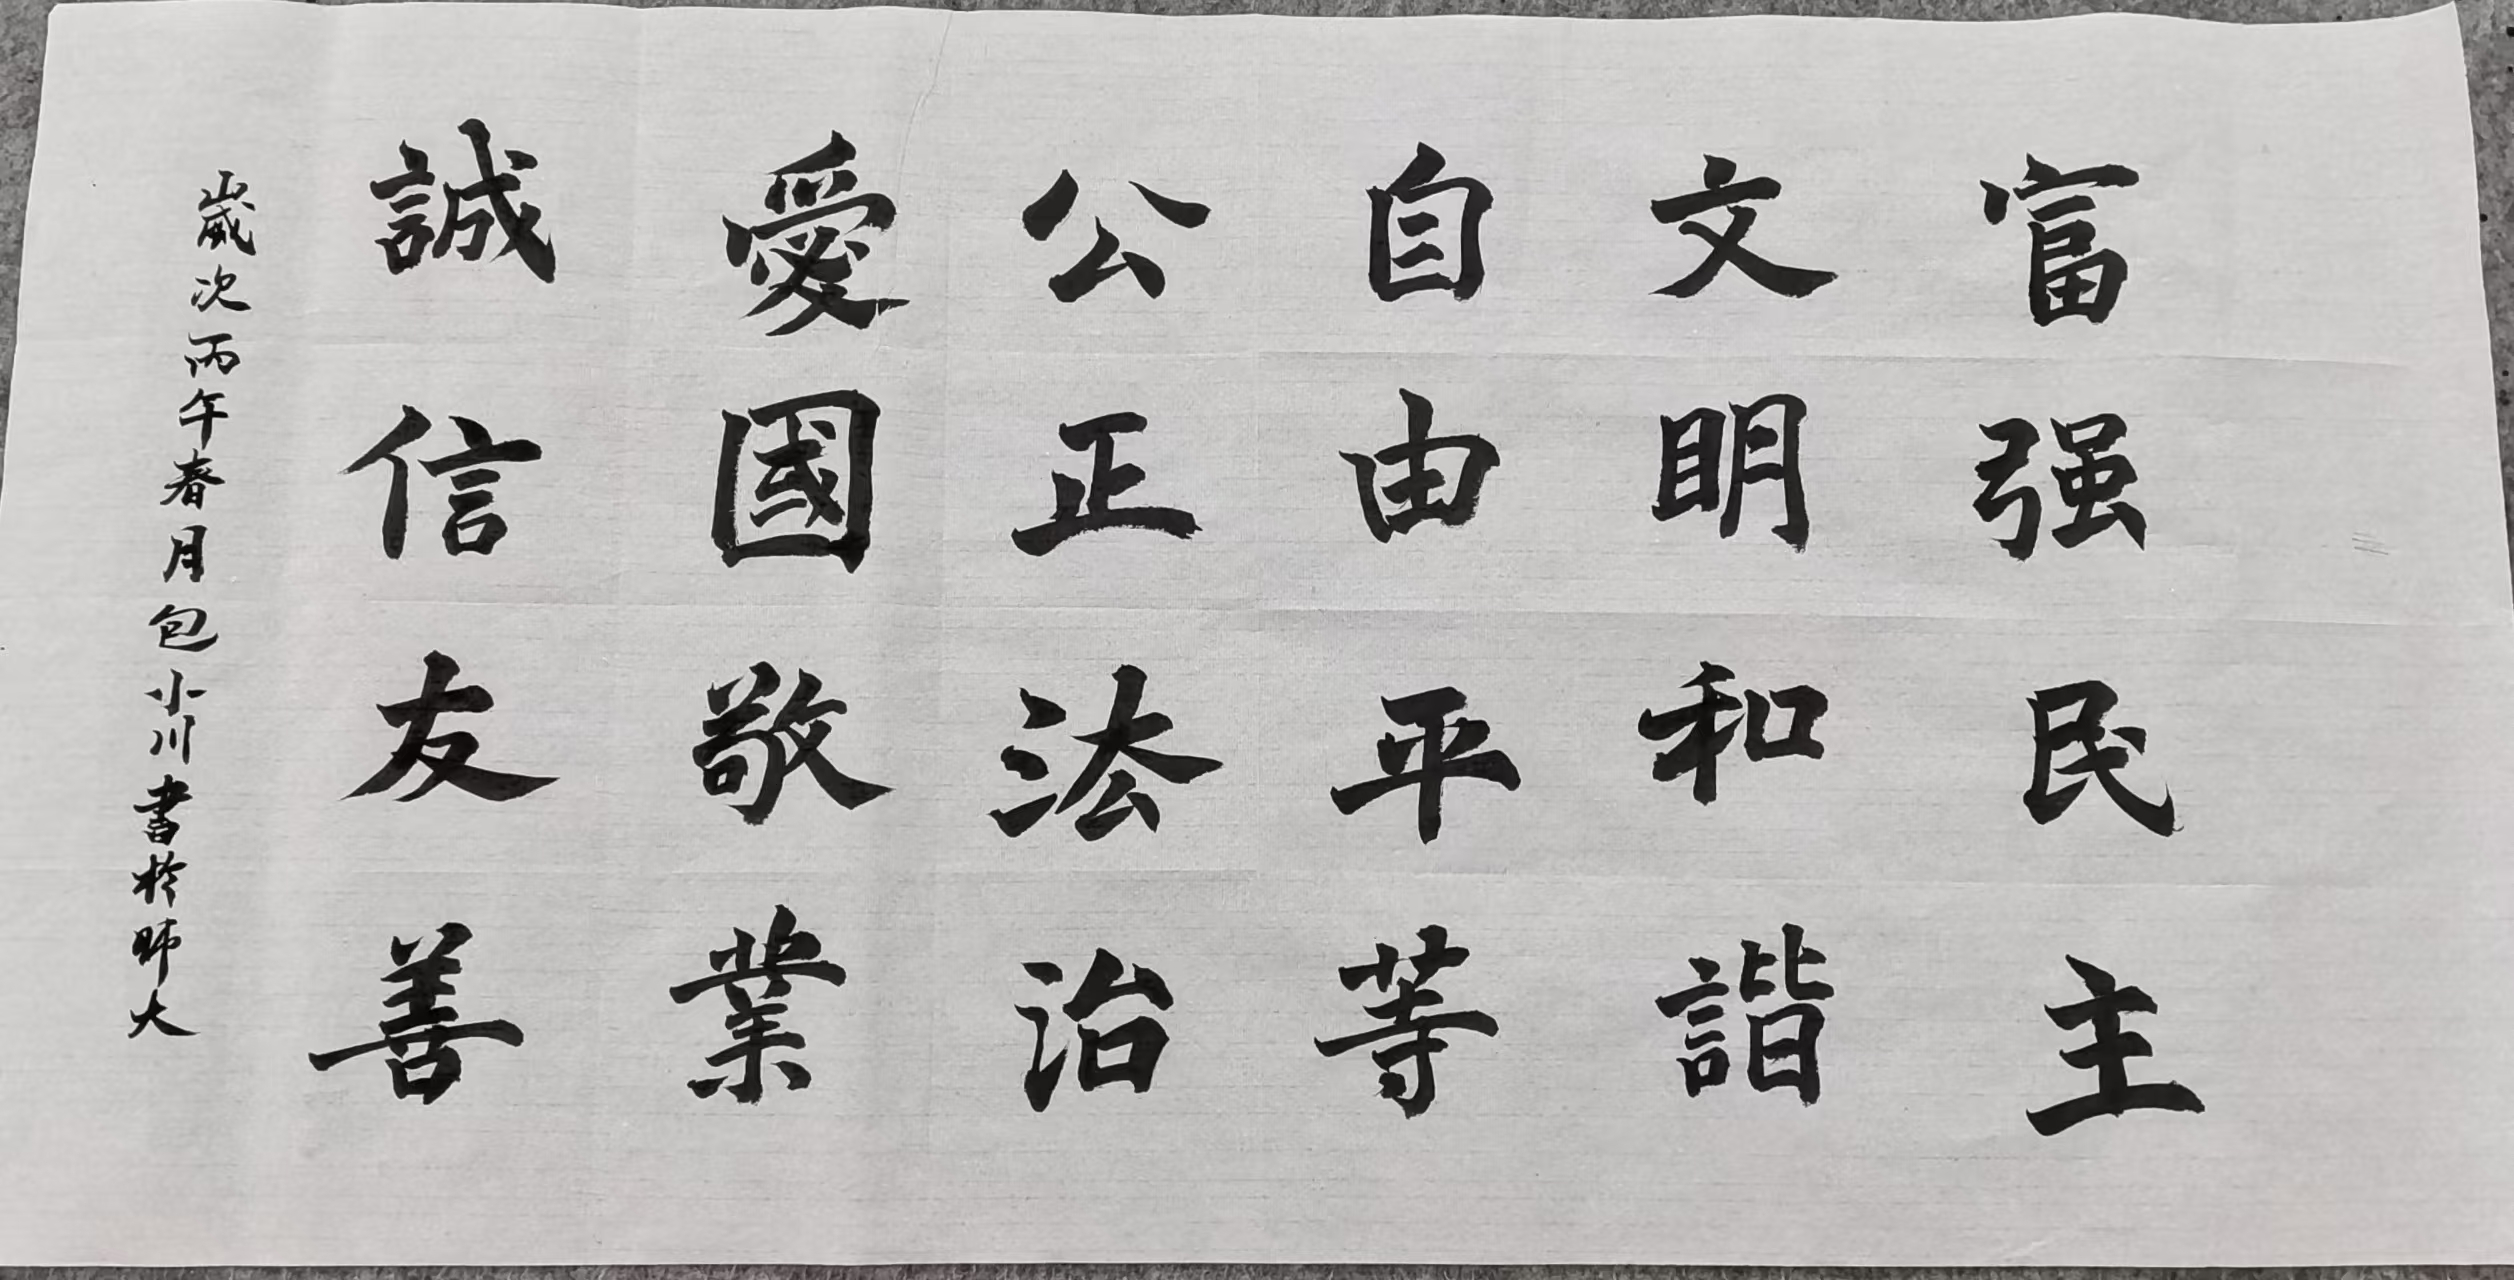 富强民主
文明和諧
自由平等
公正法治
愛國敬業
誠信友善
歲次丙午春月包小川書於師大